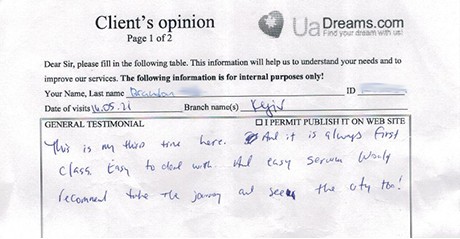 Client's opinion
Page 1 of 2
UaDreams.com
Find your dream with us!
Dear Sir, please fill in the following table. This information will help us to understand your needs and to
improve our services. The following information is for internal purposes only!
Your Name, Last name Brandon ID
Date of visits 16.05.21 Branch name(s) Kyiv
GENERAL TESTIMONIAL ☐ I PERMIT PUBLISH IT ON WEB SITE
This is my third time here. And it is always first
class. Easy to deal with. And easy service Would
recommend take the journey and see the city too!